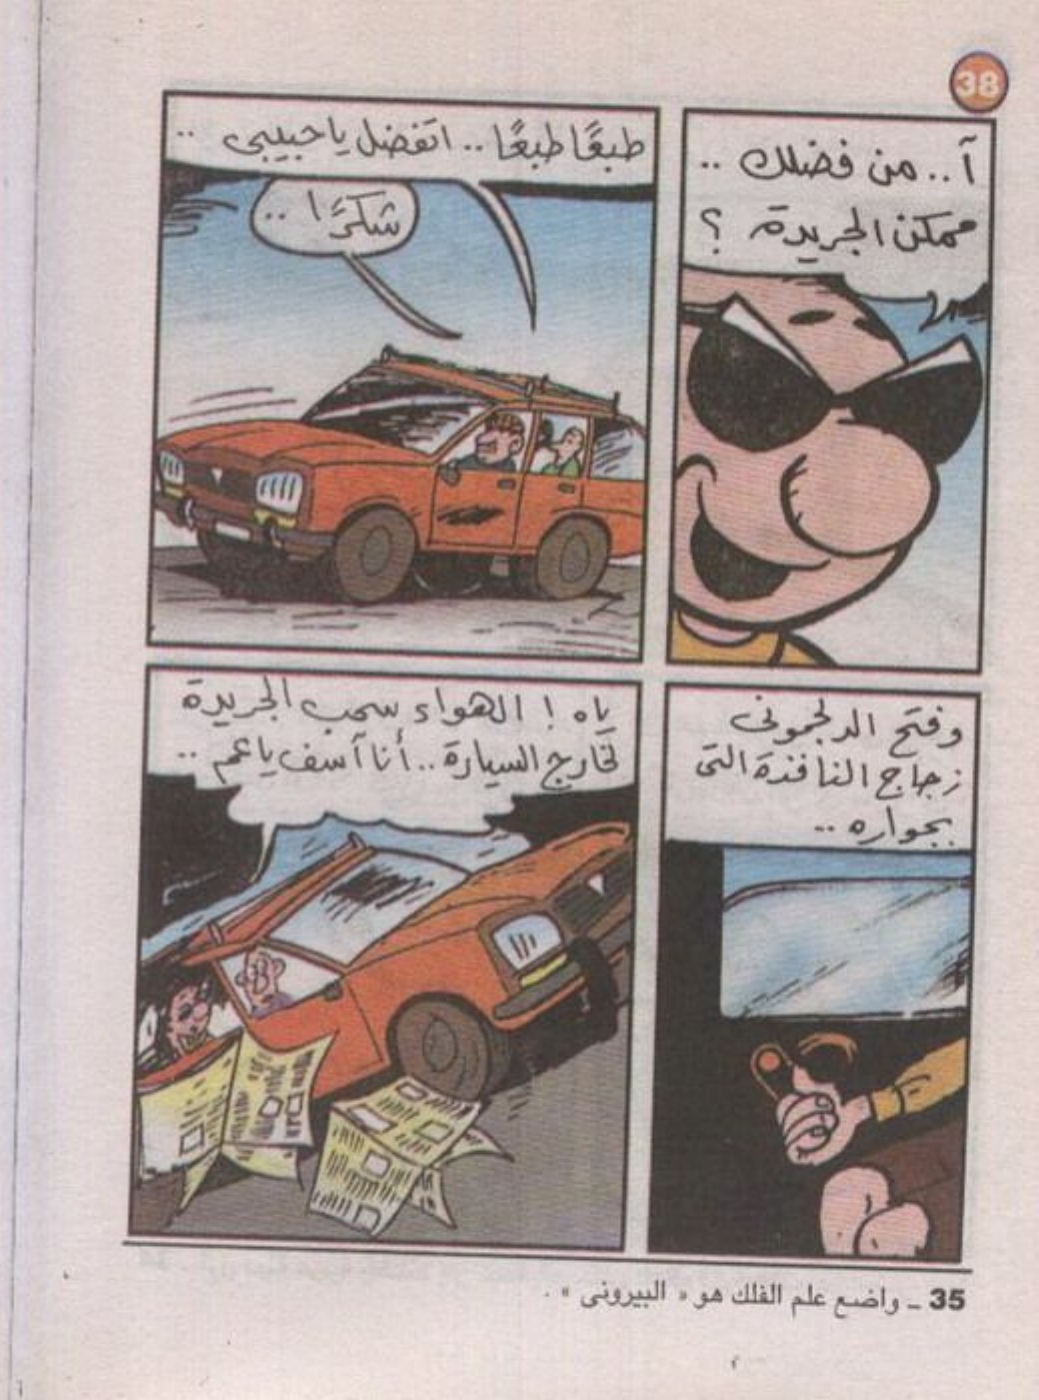 38
آ.. من فضلك ..
ممكن الجريدة ؟
طبعًا طبعًا .. اتفضل يا حبيبى ..
شكرًا ..
وفتح الدلجمونى
زجاج النافذة التى
بجواره ..
ياه ! الهواء سحب الجريدة
لخارج السيارة .. أنا آسف يا عم ..
35 ـ واضع علم الفلك هو « البيرونى » .